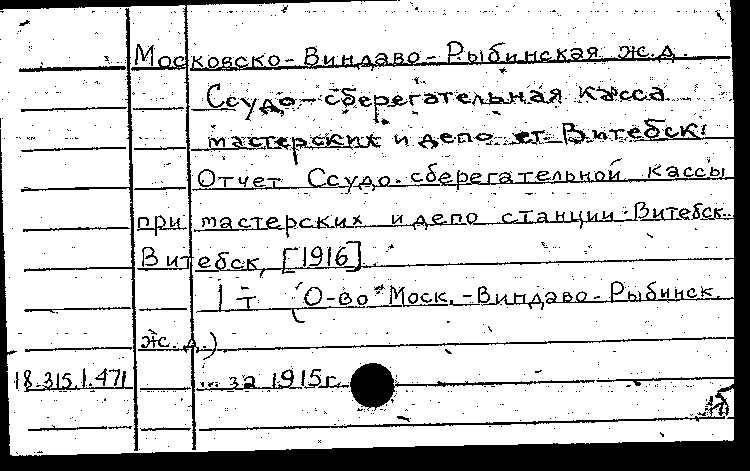 Московско-Виндаво-Рыбинская ж.д.
Ссудо-сберегательная касса
мастерских и депо ст Витебск.
Отчет Ссудо-сберегательной кассы
при мастерских и депо станции Витебск.
Витебск, [1916].
1 т (О-во Моск.-Виндаво-Рыбинск.
ж.д.)
18.315.1.471 ... за 1915г.